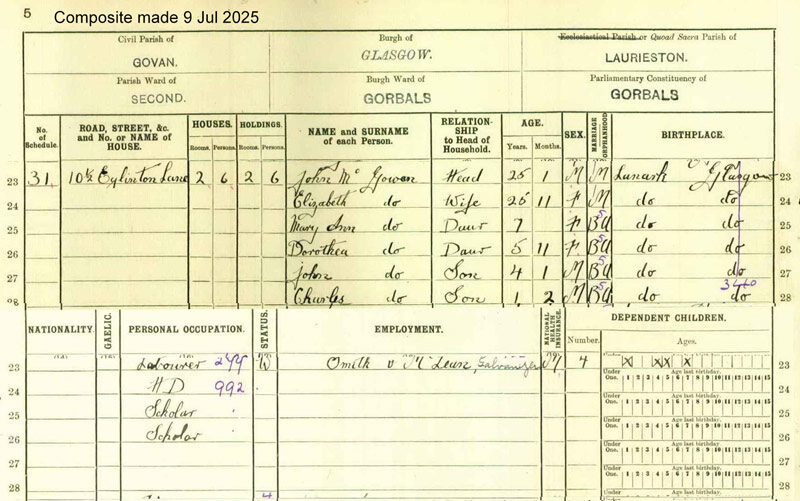 5 Composite made 9 Jul 2025
Civil Parish of Burgh of Ecclesiastical Parish or Quoad Sacra Parish of
GOVAN. GLASGOW. LAURIESTON.
Parish Ward of Burgh Ward of Parliamentary Constituency of
SECOND. GORBALS GORBALS
No. of Schedule. ROAD, STREET, &c. and No. or NAME of HOUSE. HOUSES. Rooms. Persons. HOLDINGS. Rooms. Persons. NAME and SURNAME of each Person. RELATIONSHIP to Head of Household. AGE. Years. Months. SEX. MARRIAGE ORPHANHOOD BIRTHPLACE.
23 31 10½ Eglinton Lane 2 6 2 6 John Mc Gowen Head 25 1 M M Lanark Glasgow 23
24 Elizabeth do Wife 25 11 F M do do 24
25 Mary Ann do Daur 7 F BA do do 25
26 Dorothea do Daur 5 11 F BA do do 26
27 John do Son 4 1 M BA do do 27
28 Charles do Son 1 2 M BA do do 28
NATIONALITY. GAELIC. PERSONAL OCCUPATION. STATUS. EMPLOYMENT. NATIONAL HEALTH INSURANCE. DEPENDENT CHILDREN. Number. Ages.
23 Labourer 244 W Smith v McLean, Galvanizer 4 X XX X 23
Under One. Age last birthday. 1 2 3 4 5 6 7 8 9 10 11 12 13 14 15
24 H D 992 24
Under One. Age last birthday. 1 2 3 4 5 6 7 8 9 10 11 12 13 14 15
25 Scholar 25
Under One. Age last birthday. 1 2 3 4 5 6 7 8 9 10 11 12 13 14 15
26 Scholar 26
Under One. Age last birthday. 1 2 3 4 5 6 7 8 9 10 11 12 13 14 15
27 27
Under One. Age last birthday. 1 2 3 4 5 6 7 8 9 10 11 12 13 14 15
28 28